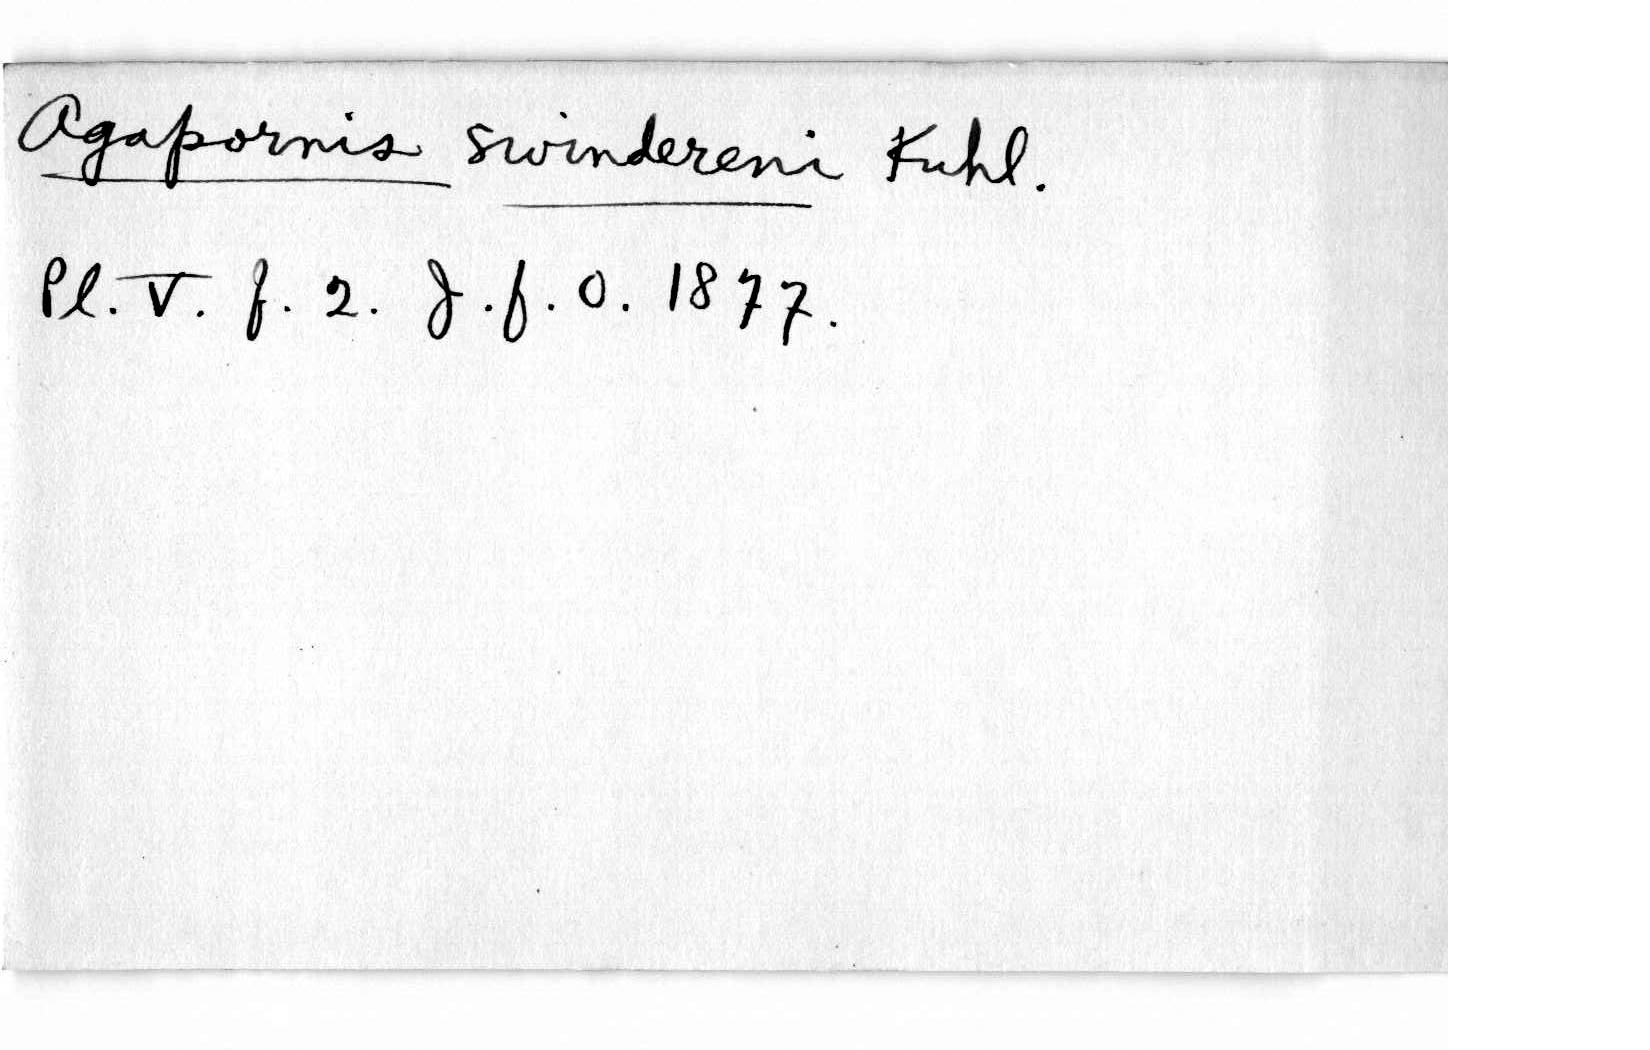 Agapornis swindereni Kuhl.
Pl. V. f. 2. J. f. O. 1877.